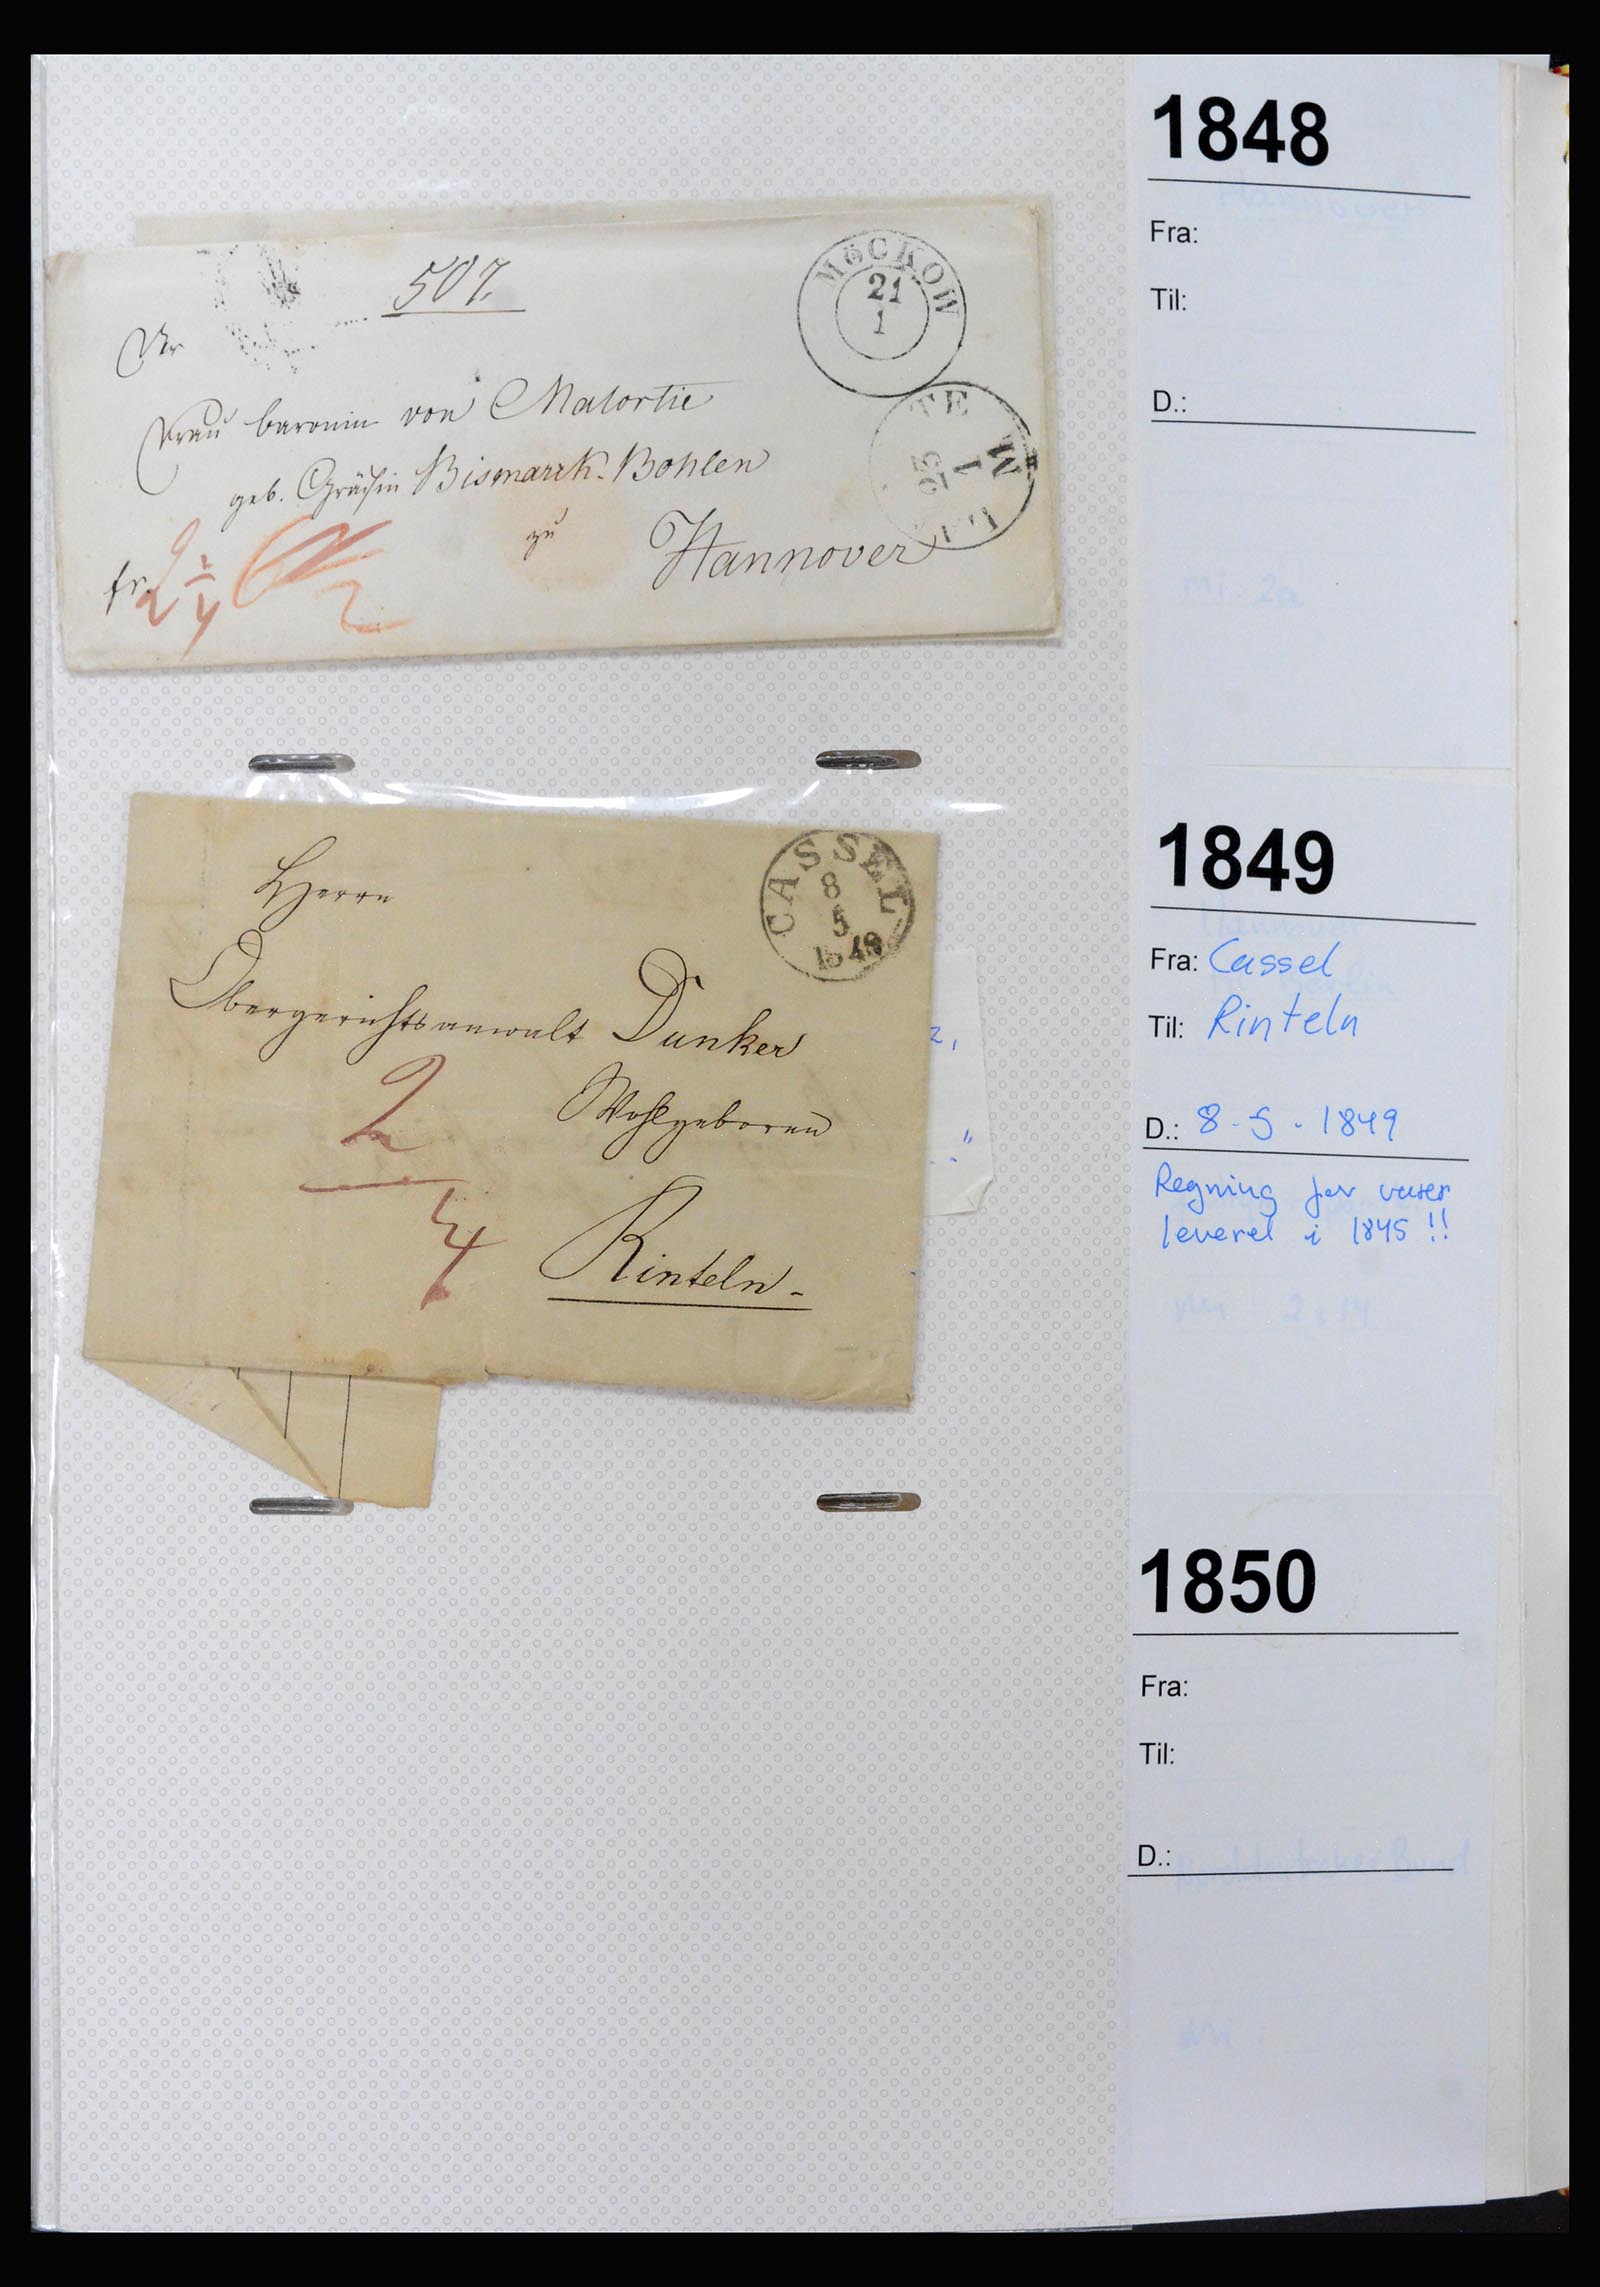 1848
Fra:
Til:
D.:
507.
MöCKOW
21
1
Frau baronin von Malortie
geb. Gräfin Bismarck-Bohlen
zu
Hannover
fr.
TE
25
1
1849
Fra: Cassel
Til: Rinteln
D.: 8-5-1849
Regning for varer
leveret i 1845 !!
CASSEL
8
5
1849
Herrn
Obergerichtsanwalt Dunker
Wohlgeboren
2
Rinteln.
1850
Fra:
Til:
D.: